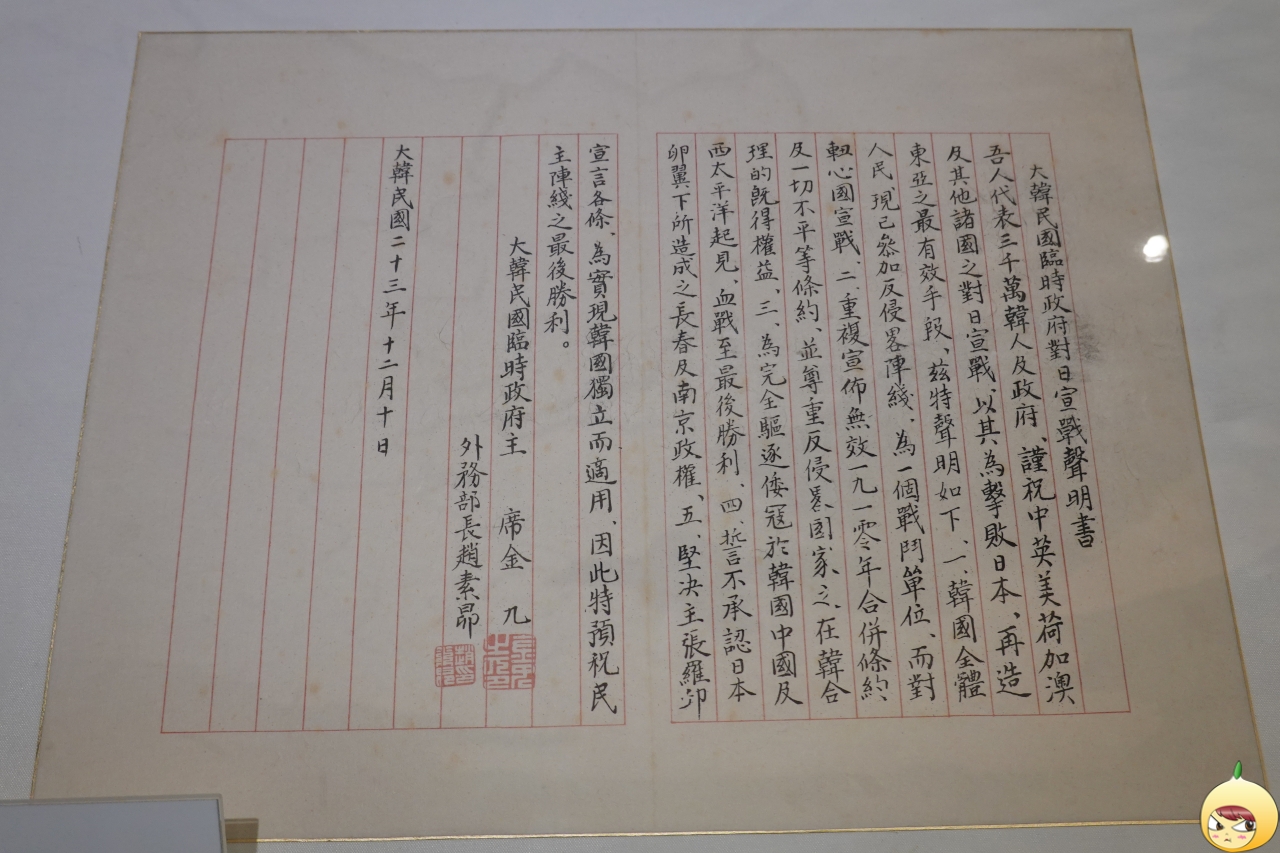 大韓民國臨時政府對日宣戰聲明書
吾人代表三千萬韓人及政府、謹祝中英美荷加澳
及其他諸國之對日宣戰、以其為擊敗日本、再造
東亞之最有效手段、茲特聲明如下、一、韓國全體
人民現已參加反侵畧陣綫、為一個戰鬥單位、而對
軸心國宣戰、二、重複宣佈無效一九一零年合併條約
及一切不平等條約、並尊重反侵畧國家之在韓合
理的既得權益、三、為完全驅逐倭寇於韓國中國及
西太平洋起見、血戰至最後勝利、四、誓言不承認日本
卵翼下所造成之長春及南京政權、五、堅决主張羅邱
宣言各條、為實現韓國獨立而適用、因此特預祝民
主陣綫之最後勝利。
大韓民國臨時政府主 席金 九
外務部長趙素昂
大韓民國二十三年十二月十日